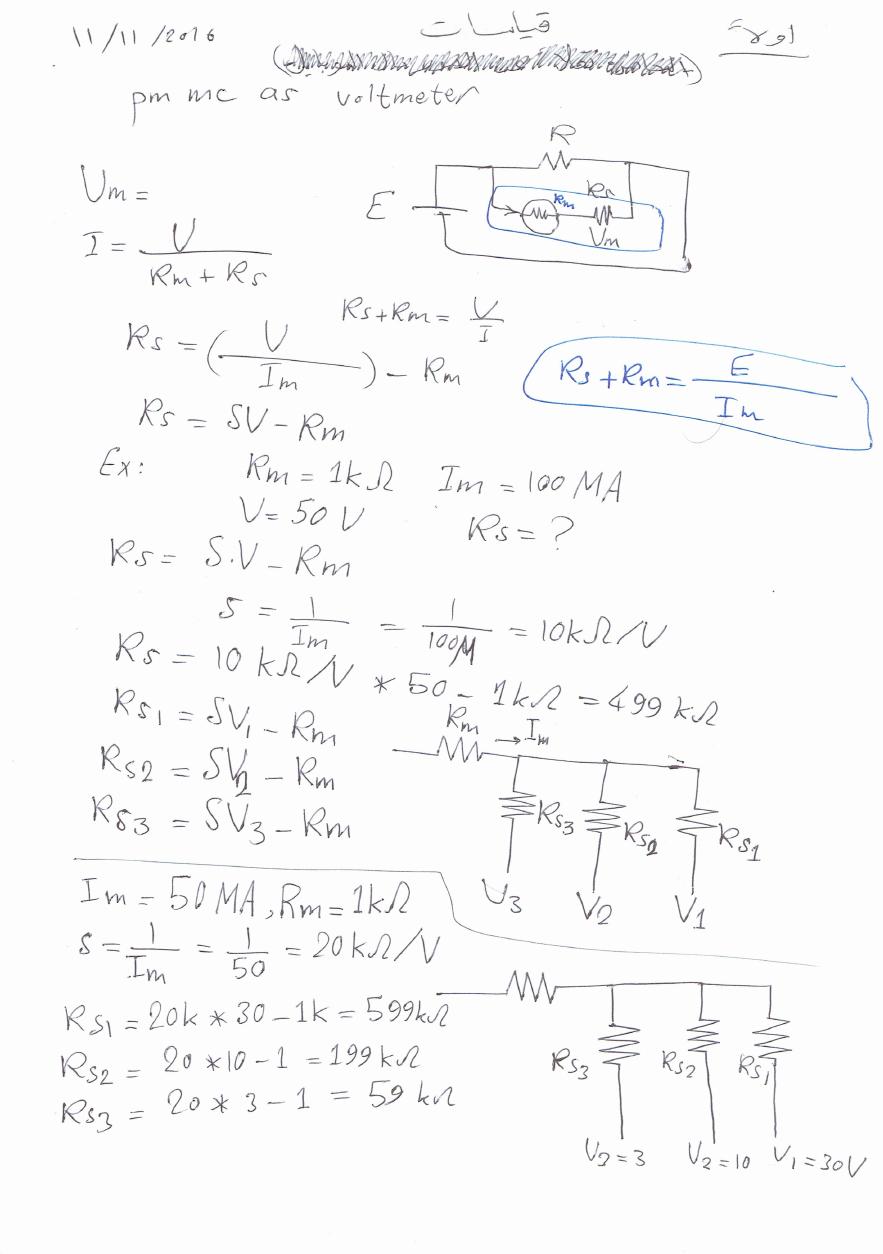 11/11/2016 قياسات اولاً
pmmc as voltmeter
R
Vm =
E Rm Rs
Vm
I = V / Rm + Rs
Rs + Rm = V / I
Rs = ( V / Im ) - Rm
Rs + Rm = E / Im
Rs = SV - Rm
Ex: Rm = 1kΩ Im = 100 MA
V = 50 V Rs = ?
Rs = S.V - Rm
S = 1 / Im = 1 / 100M = 10kΩ/V
Rs = 10 kΩ/V * 50 - 1kΩ = 499 kΩ
Rs1 = SV1 - Rm
Rm → Im
Rs2 = SV2 - Rm
Rs3 = SV3 - Rm
Rs3 Rs2 Rs1
V3 V2 V1
Im = 50 MA, Rm = 1kΩ
S = 1 / Im = 1 / 50 = 20kΩ/V
Rs1 = 20k * 30 - 1k = 599kΩ
Rs2 = 20 * 10 - 1 = 199kΩ
Rs3 = 20 * 3 - 1 = 59 kΩ
Rs3 Rs2 Rs1
V3 = 3 V2 = 10 V1 = 30V